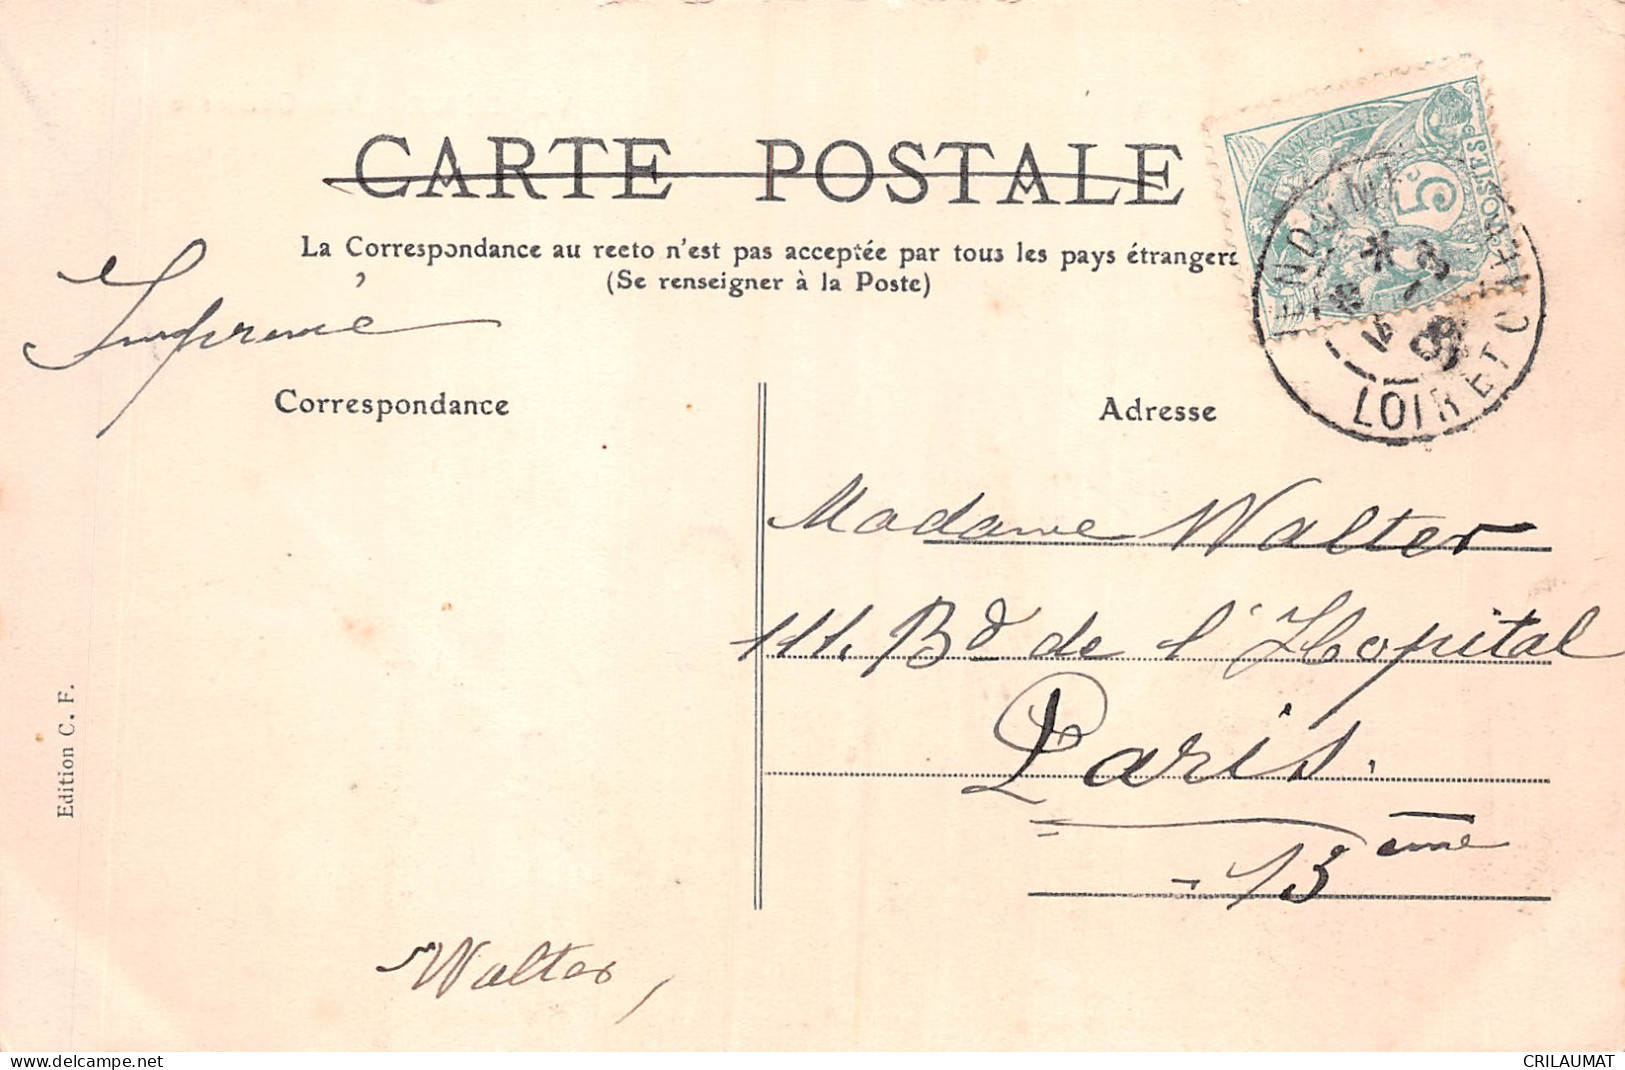 CARTE POSTALE
La Correspondance au recto n'est pas acceptée par tous les pays étrangers
(Se renseigner à la Poste)
Imprimé
Correspondance
Adresse
FRANÇAISE
POSTES
5
LOIR ET CHER
Madame Walter
111. Bd de l'Hopital
Paris.
- 13ème
Walter,
Edition C. F.
delcampe.net
CRILAUMAT